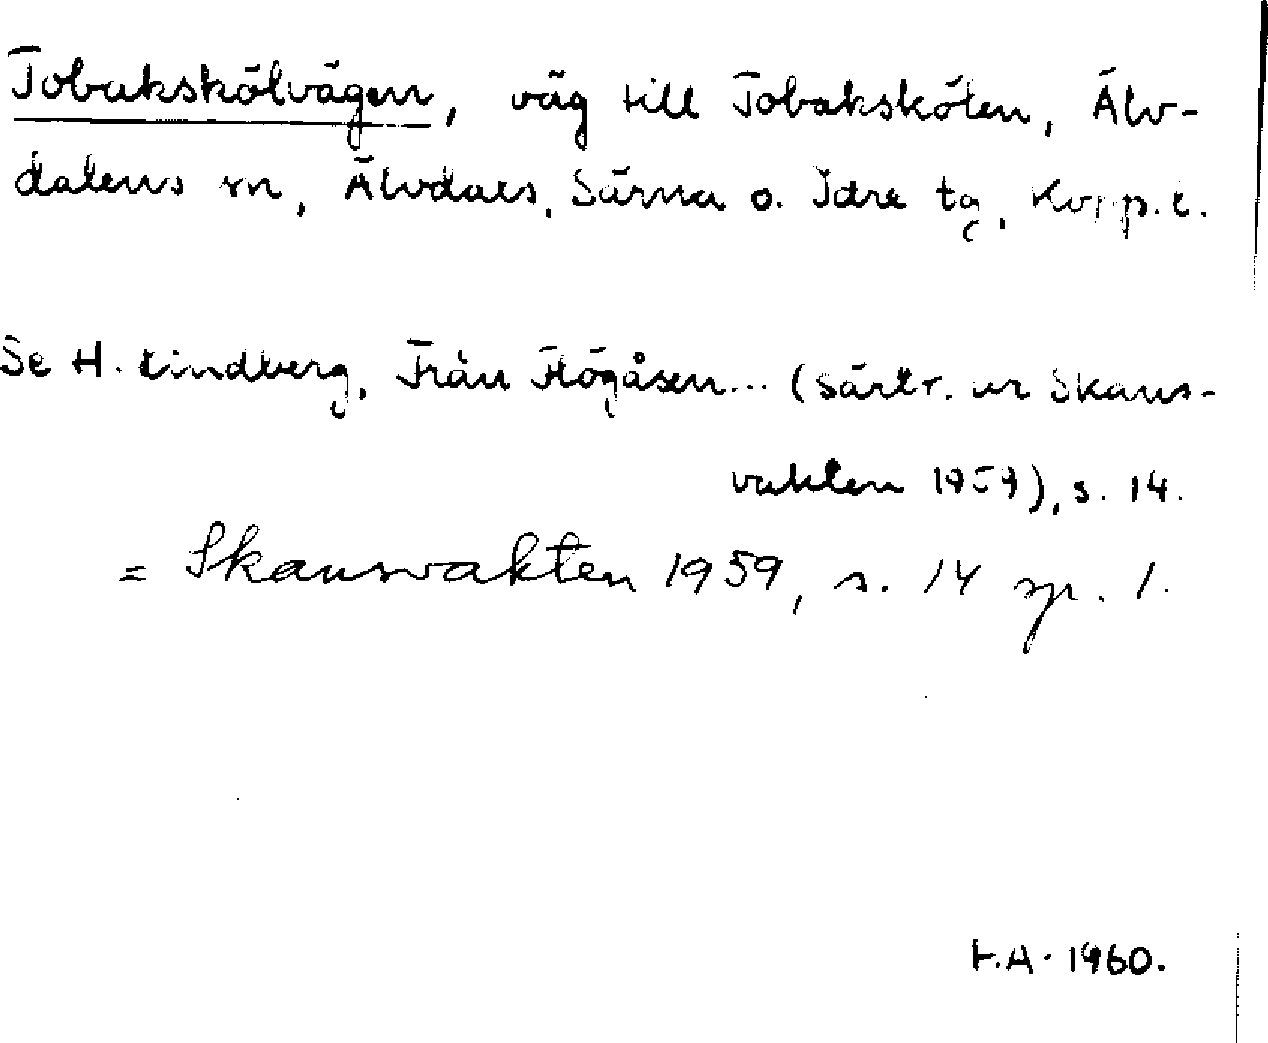 Tobakskölvägen, väg till Tobakskölen, Älv-
dalens sn, Älvdals, Särna o. Idre tg, Kopp. l.
Se H. Lindberg, Från Högåsen... (Särtr. ur Skans-
vakten 1959), s. 14.
= Skansvakten 1959, s. 14 sp. 1.
F.A. 1960.